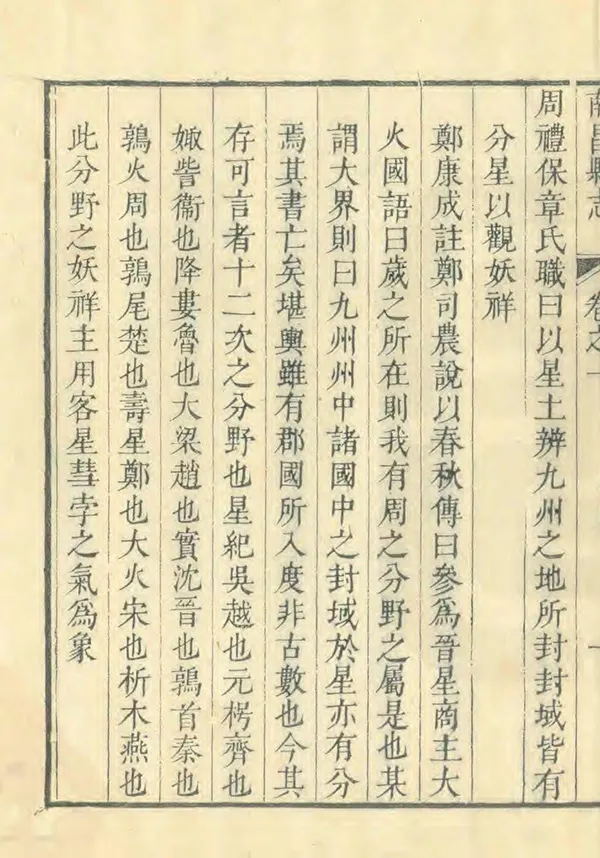 南昌縣志
卷之一
周禮保章氏職曰以星土辨九州之地所封封域皆有
分星以觀妖祥
鄭康成註鄭司農說以春秋傳曰參為晉星商主大
火國語曰歲之所在則我有周之分野之屬是也某
謂大界則曰九州州中諸國中之封域於星亦有分
焉其書亡矣堪輿雖有郡國所入度非古數也今其
存可言者十二次之分野也星紀吳越也元枵齊也
娵訾衞也降婁魯也大梁趙也實沈晉也鶉首秦也
鶉火周也鶉尾楚也壽星鄭也大火宋也析木燕也
此分野之妖祥主用客星彗孛之氣爲象